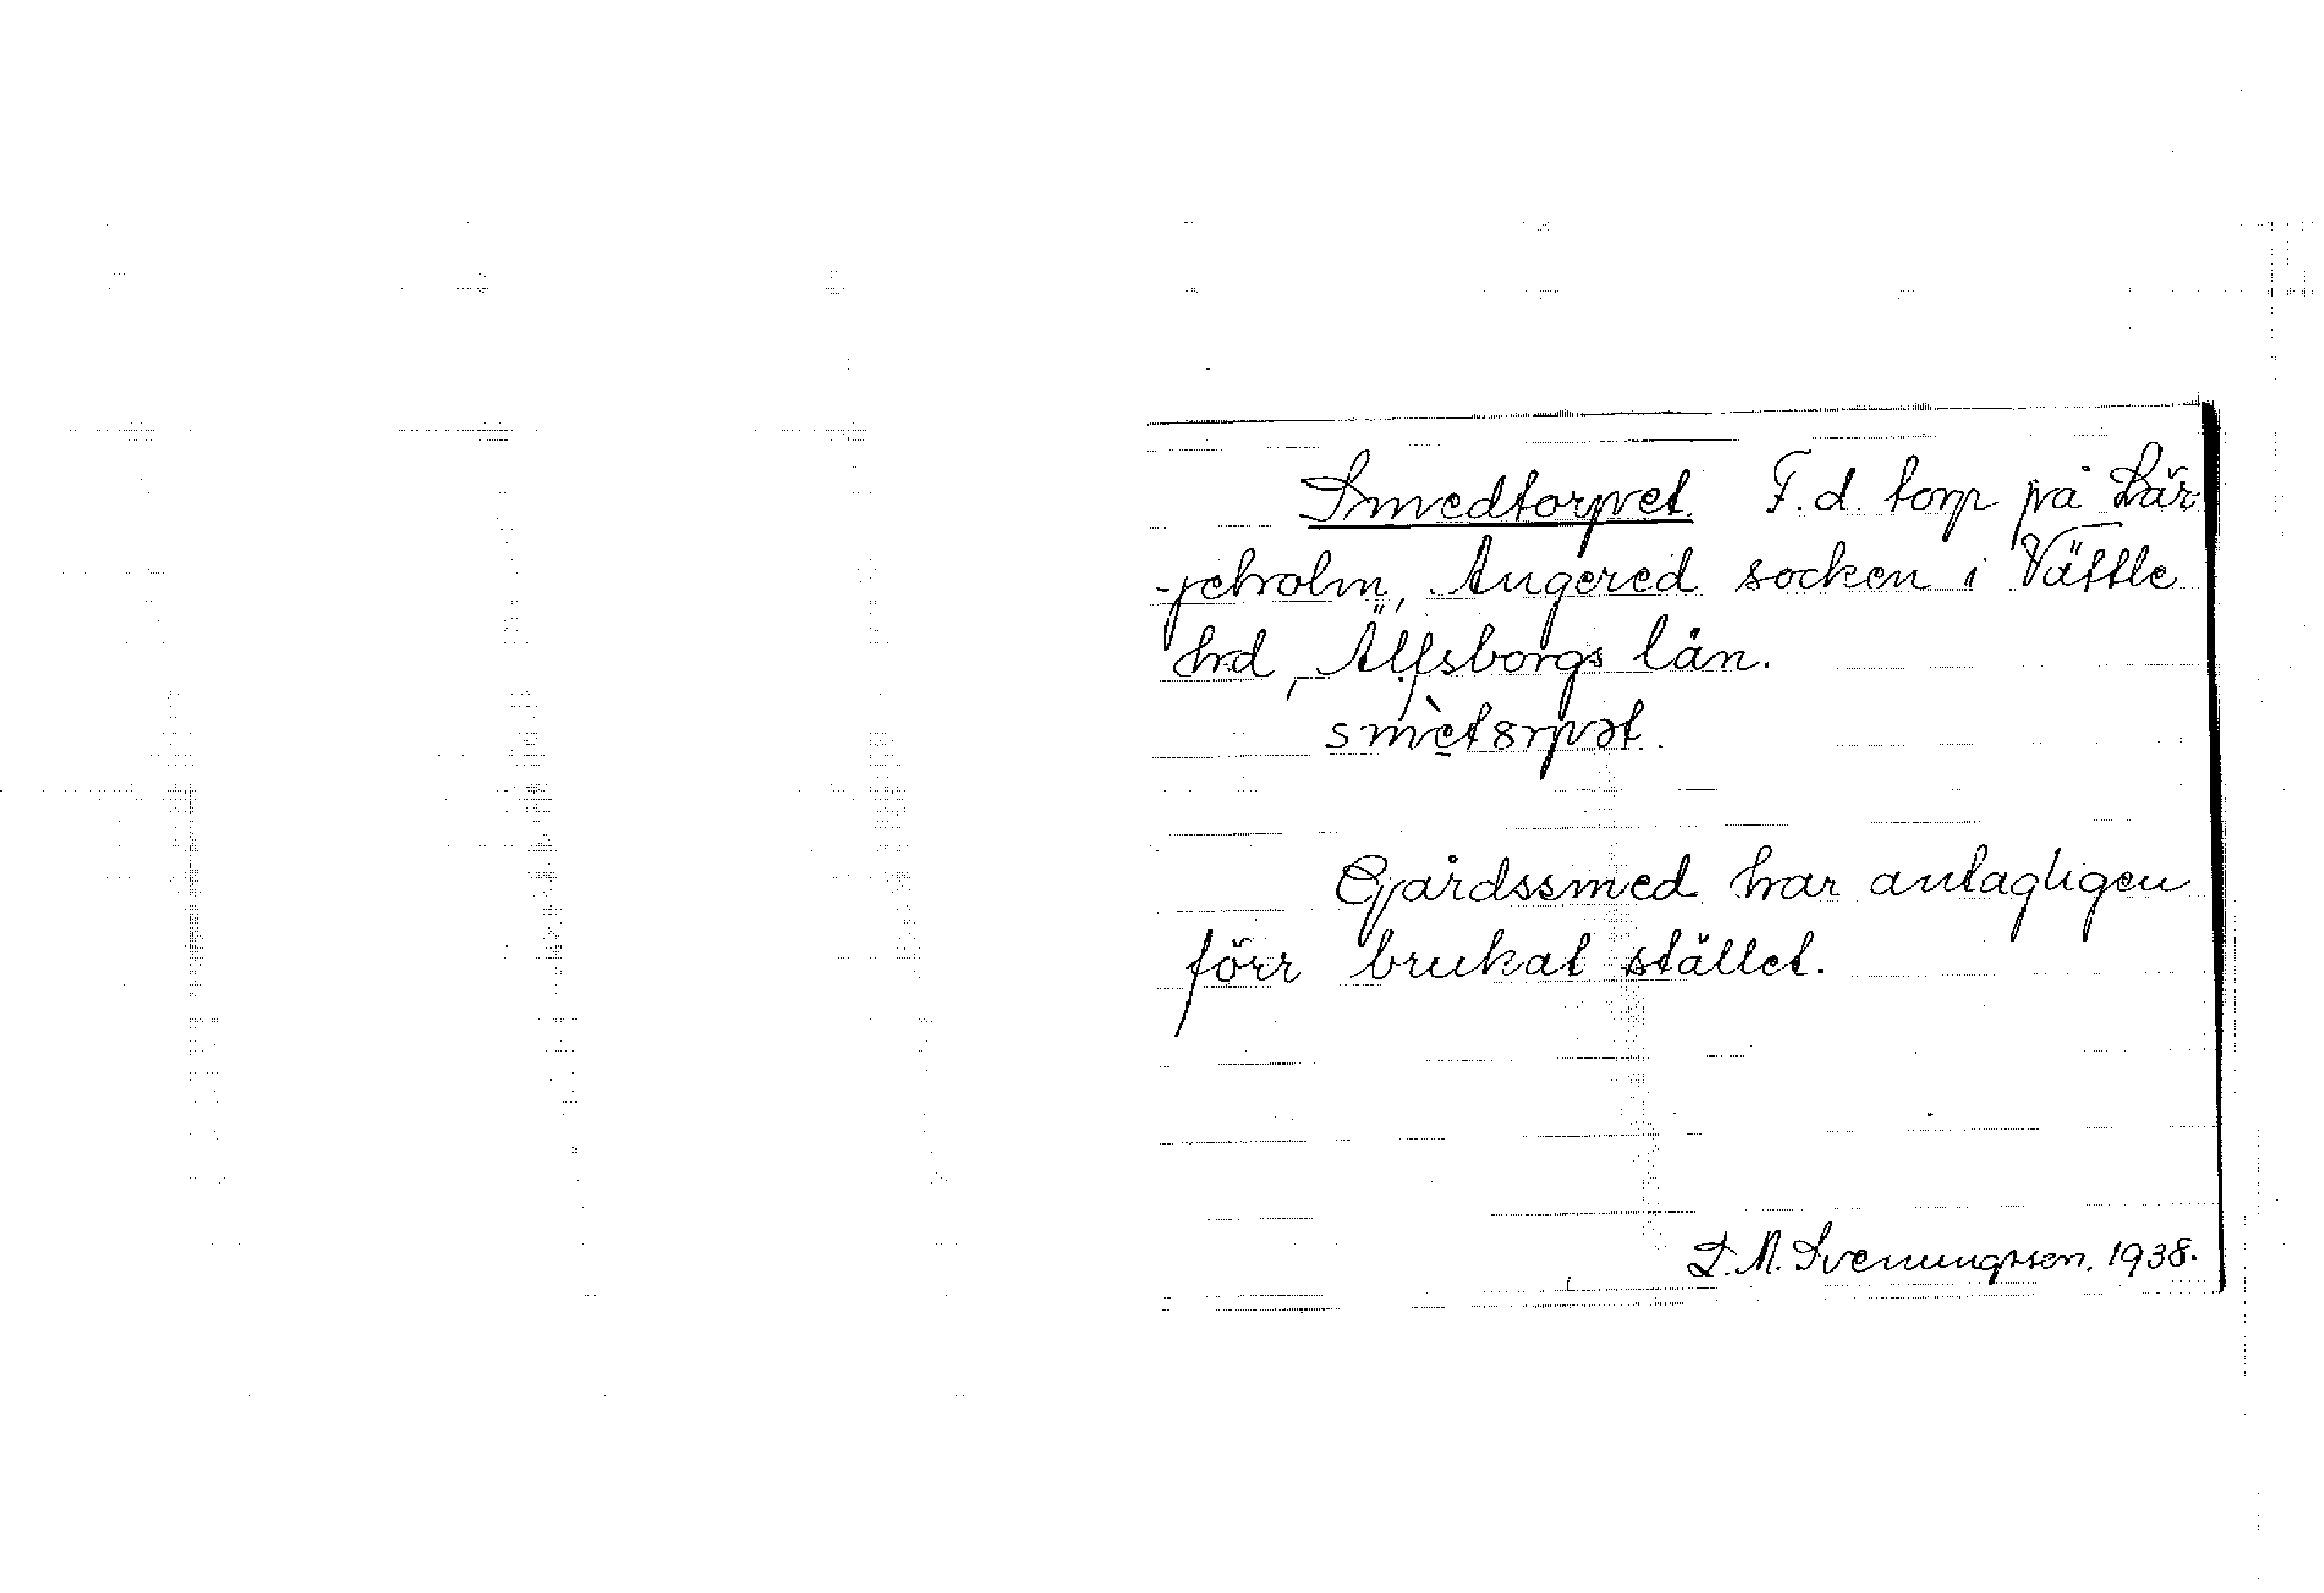 Smedtorpet. F.d. torp på Lär-
jeholm, Angered socken i Vättle
hrd, Älfsborgs län.
smètorpət.
Gårdssmed har antagligen
förr brukat stället.
L. M. Svenungsson. 1938.